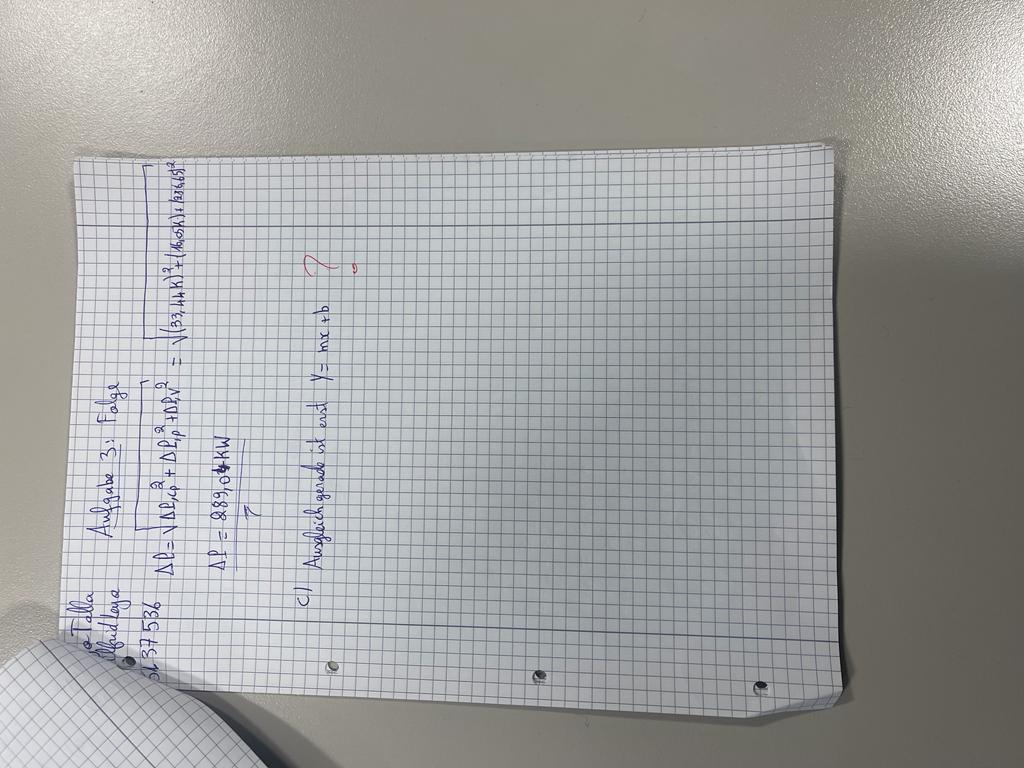 Talla
37536
Aufgabe 3: Folge
ΔP = √ΔP,cp² + ΔP,p² + ΔP,v² = √(33,44K)²+(16,
ΔP = 289,04KW
?
c) Ausgleichgerade ist erst Y = mx + b ?